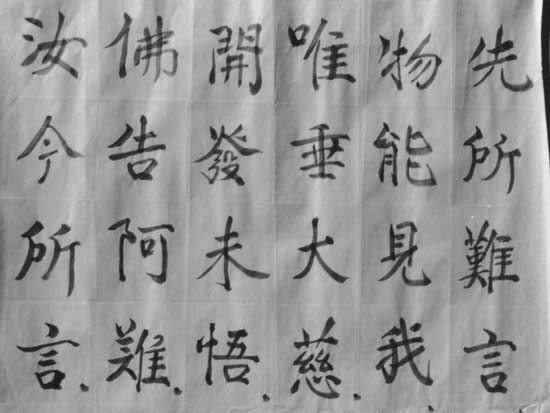 先所難言
物能見我.
唯垂大慈.
開發未悟.
佛告阿難.
汝今所言.